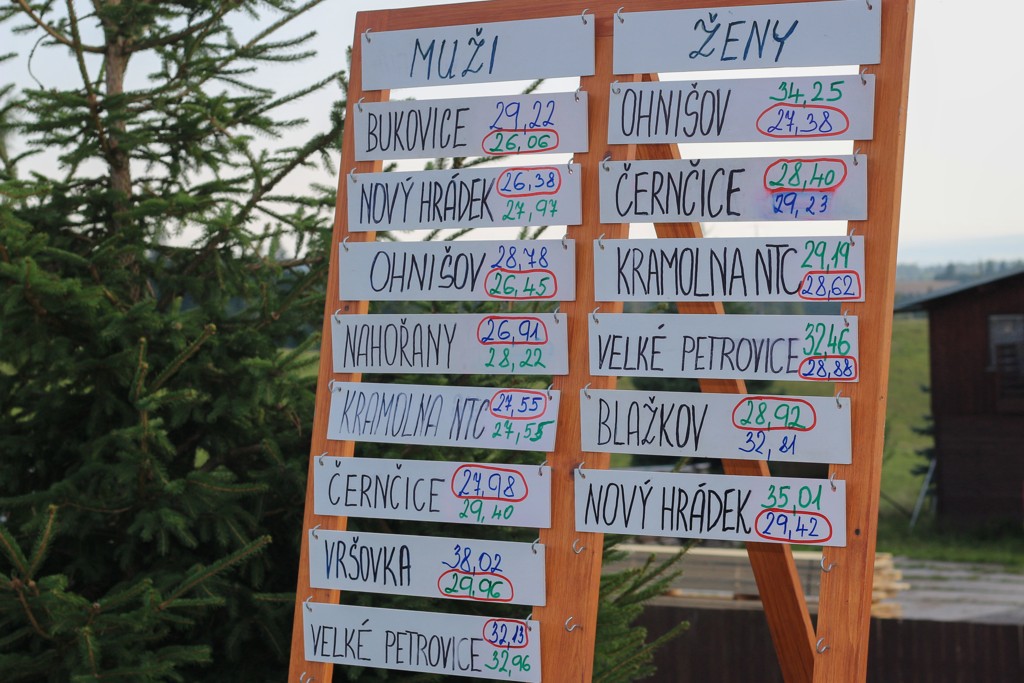 MUŽI
BUKOVICE 29,22
26,06
NOVÝ HRÁDEK 26,38
27,97
OHNIŠOV 28,78
26,45
NAHOŘANY 26,91
28,22
KRAMOLNA NTC 27,55
27,55
ČERNČICE 27,98
29,40
VRŠOVKA 38,02
29,96
VELKÉ PETROVICE 32,13
32,96
ŽENY
OHNIŠOV 34,25
27,38
ČERNČICE 28,40
29,23
KRAMOLNA NTC 29,19
28,62
VELKÉ PETROVICE 32,46
28,88
BLAŽKOV 28,92
32,81
NOVÝ HRÁDEK 35,01
29,42